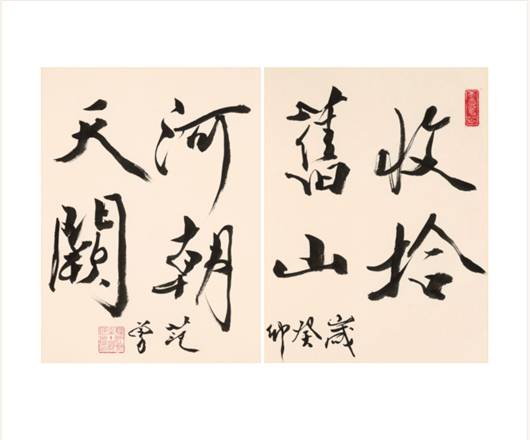 收拾
舊山
河朝
天闕
歲癸卯
范曾